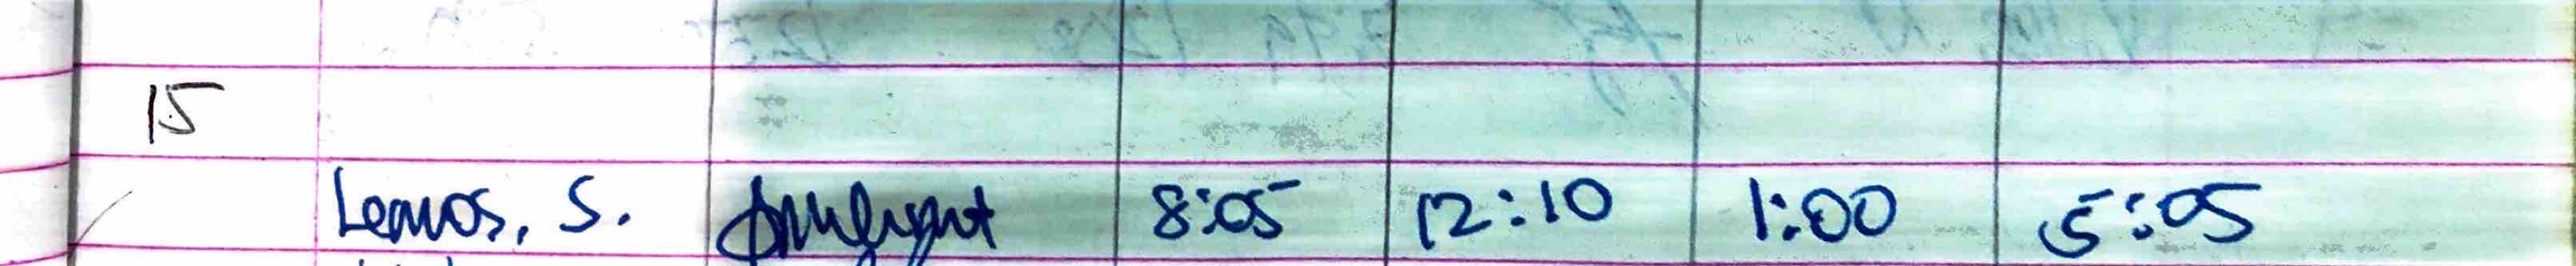 15
Lemos, S. 8:05 12:10 1:00 5:05